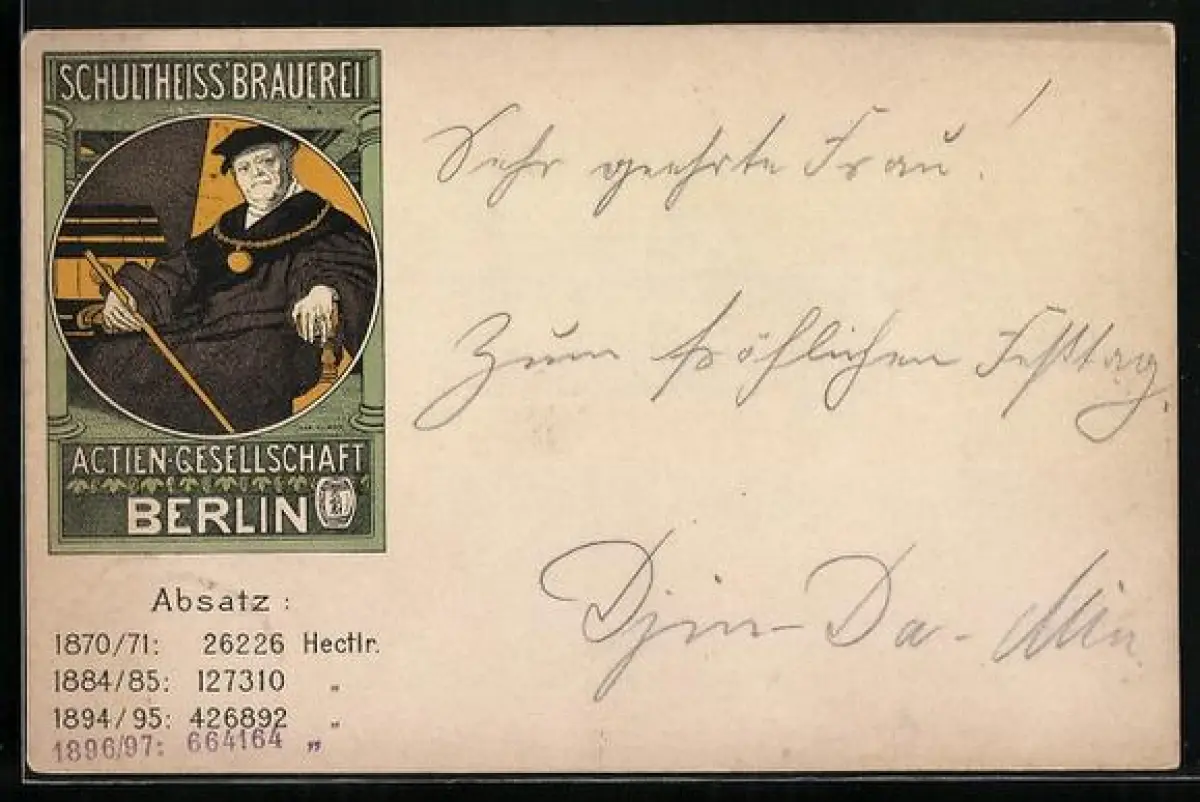 SCHULTHEISS' BRAUEREI
ACTIEN-GESELLSCHAFT
BERLIN
Absatz :
1870/71: 26226 Hectlr.
1884/85: 127310 "
1894/95: 426892 "
1896/97: 664164 "
Sehr geehrte Frau!
Zum fröhlichen Festtag.
Djin-Da-Min